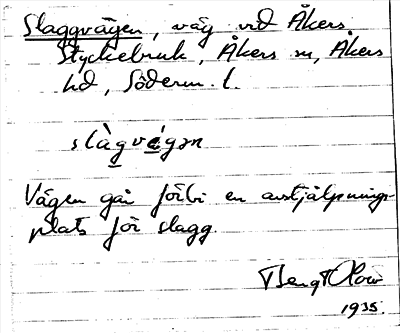 Slaggvägen, väg vid Åkers
Styckebruk, Åkers sn, Åkers
hd, Söderm. l.
slàgvé̠gən
Vägen går förbi en avstjälpnings-
plats för slagg
Bengt
1935.